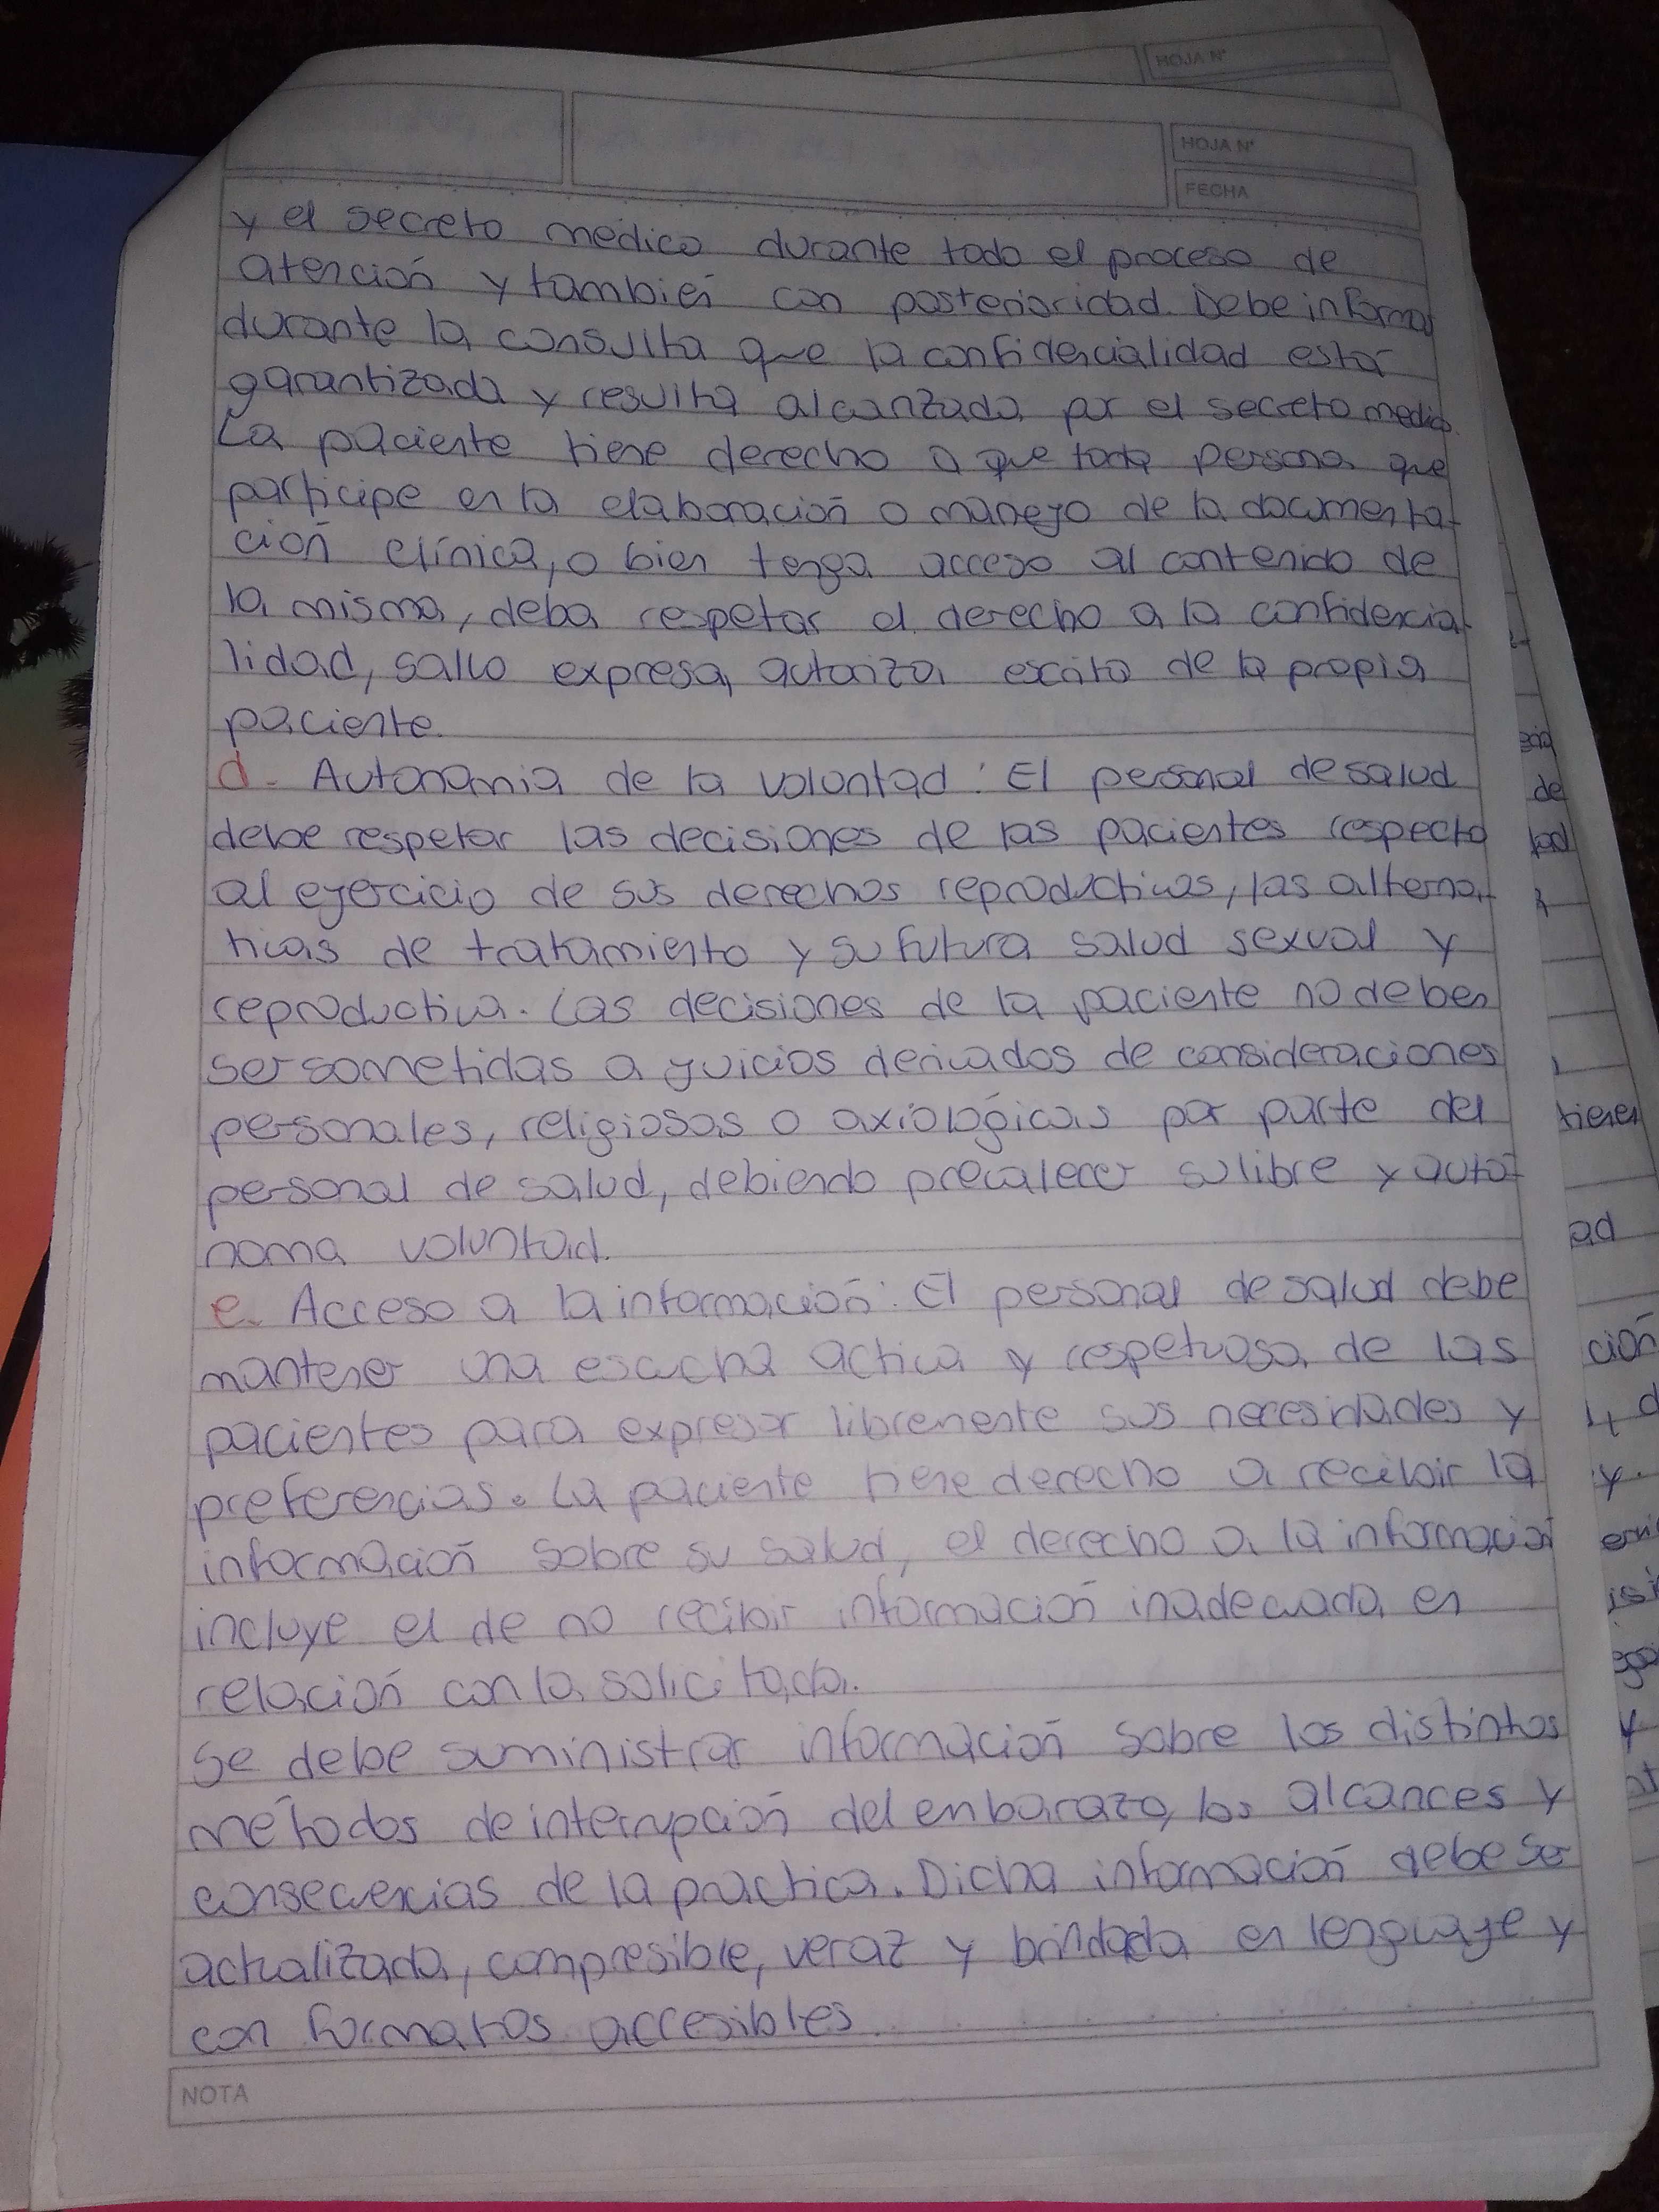 HOJA N°
HOJA N°
FECHA
y el secreto medico durante todo el proceso de
atención y también con posterioridad. Debe informar
durante la consulta que la confidencialidad esta
garantizada y resulta alcanzada por el secreto medico.
La paciente tiene derecho a que toda persona que
participe en la elaboración o manejo de la documenta-
ción clínica, o bien tenga acceso al contenido de
la misma, deba respetar el derecho a la confidencia-
lidad, salvo expresa autoriza escrito de la propia
paciente.
d. Autonomia de la voluntad: El personal de salud
debe respetar las decisiones de las pacientes respecto
al ejercicio de sus derechos reproductivos, las alterna-
tivas de tratamiento y su futura salud sexual y
reproductiva. Las decisiones de la paciente no deben
ser sometidas a juicios derivados de consideraciones
personales, religiosas o axiológicas por parte del
personal de salud, debiendo prevalecer su libre y autó-
noma voluntad.
e. Acceso a la información: El personal de salud debe
mantener una escucha activa y respetuosa de las
pacientes para expresar libremente sus necesidades y
preferencias. La paciente tiene derecho a recibir la
información sobre su salud, el derecho a la información
incluye el de no recibir información inadecuada en
relación con la solicitada.
Se debe suministrar información sobre los distintos
métodos de interrupción del enbarazo, los alcances y
consecuencias de la practica. Dicha información debe ser
actualizada, compresible, veraz y brindada en lenguaje y
con formatos accesibles.
NOTA